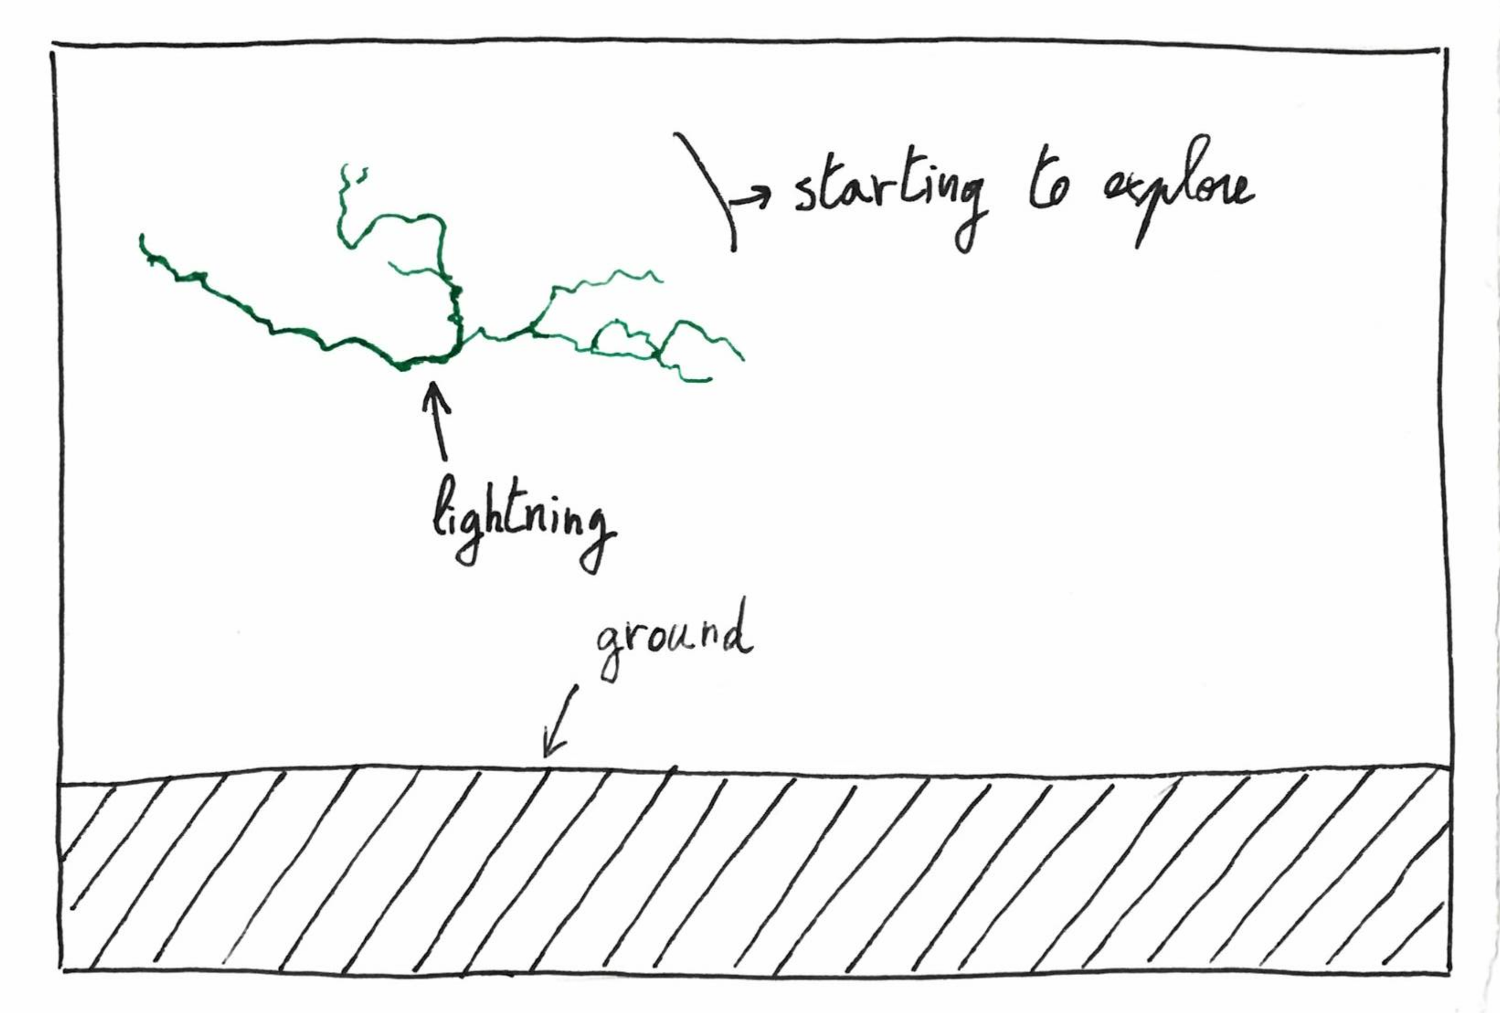 starting to explore
lightning
ground